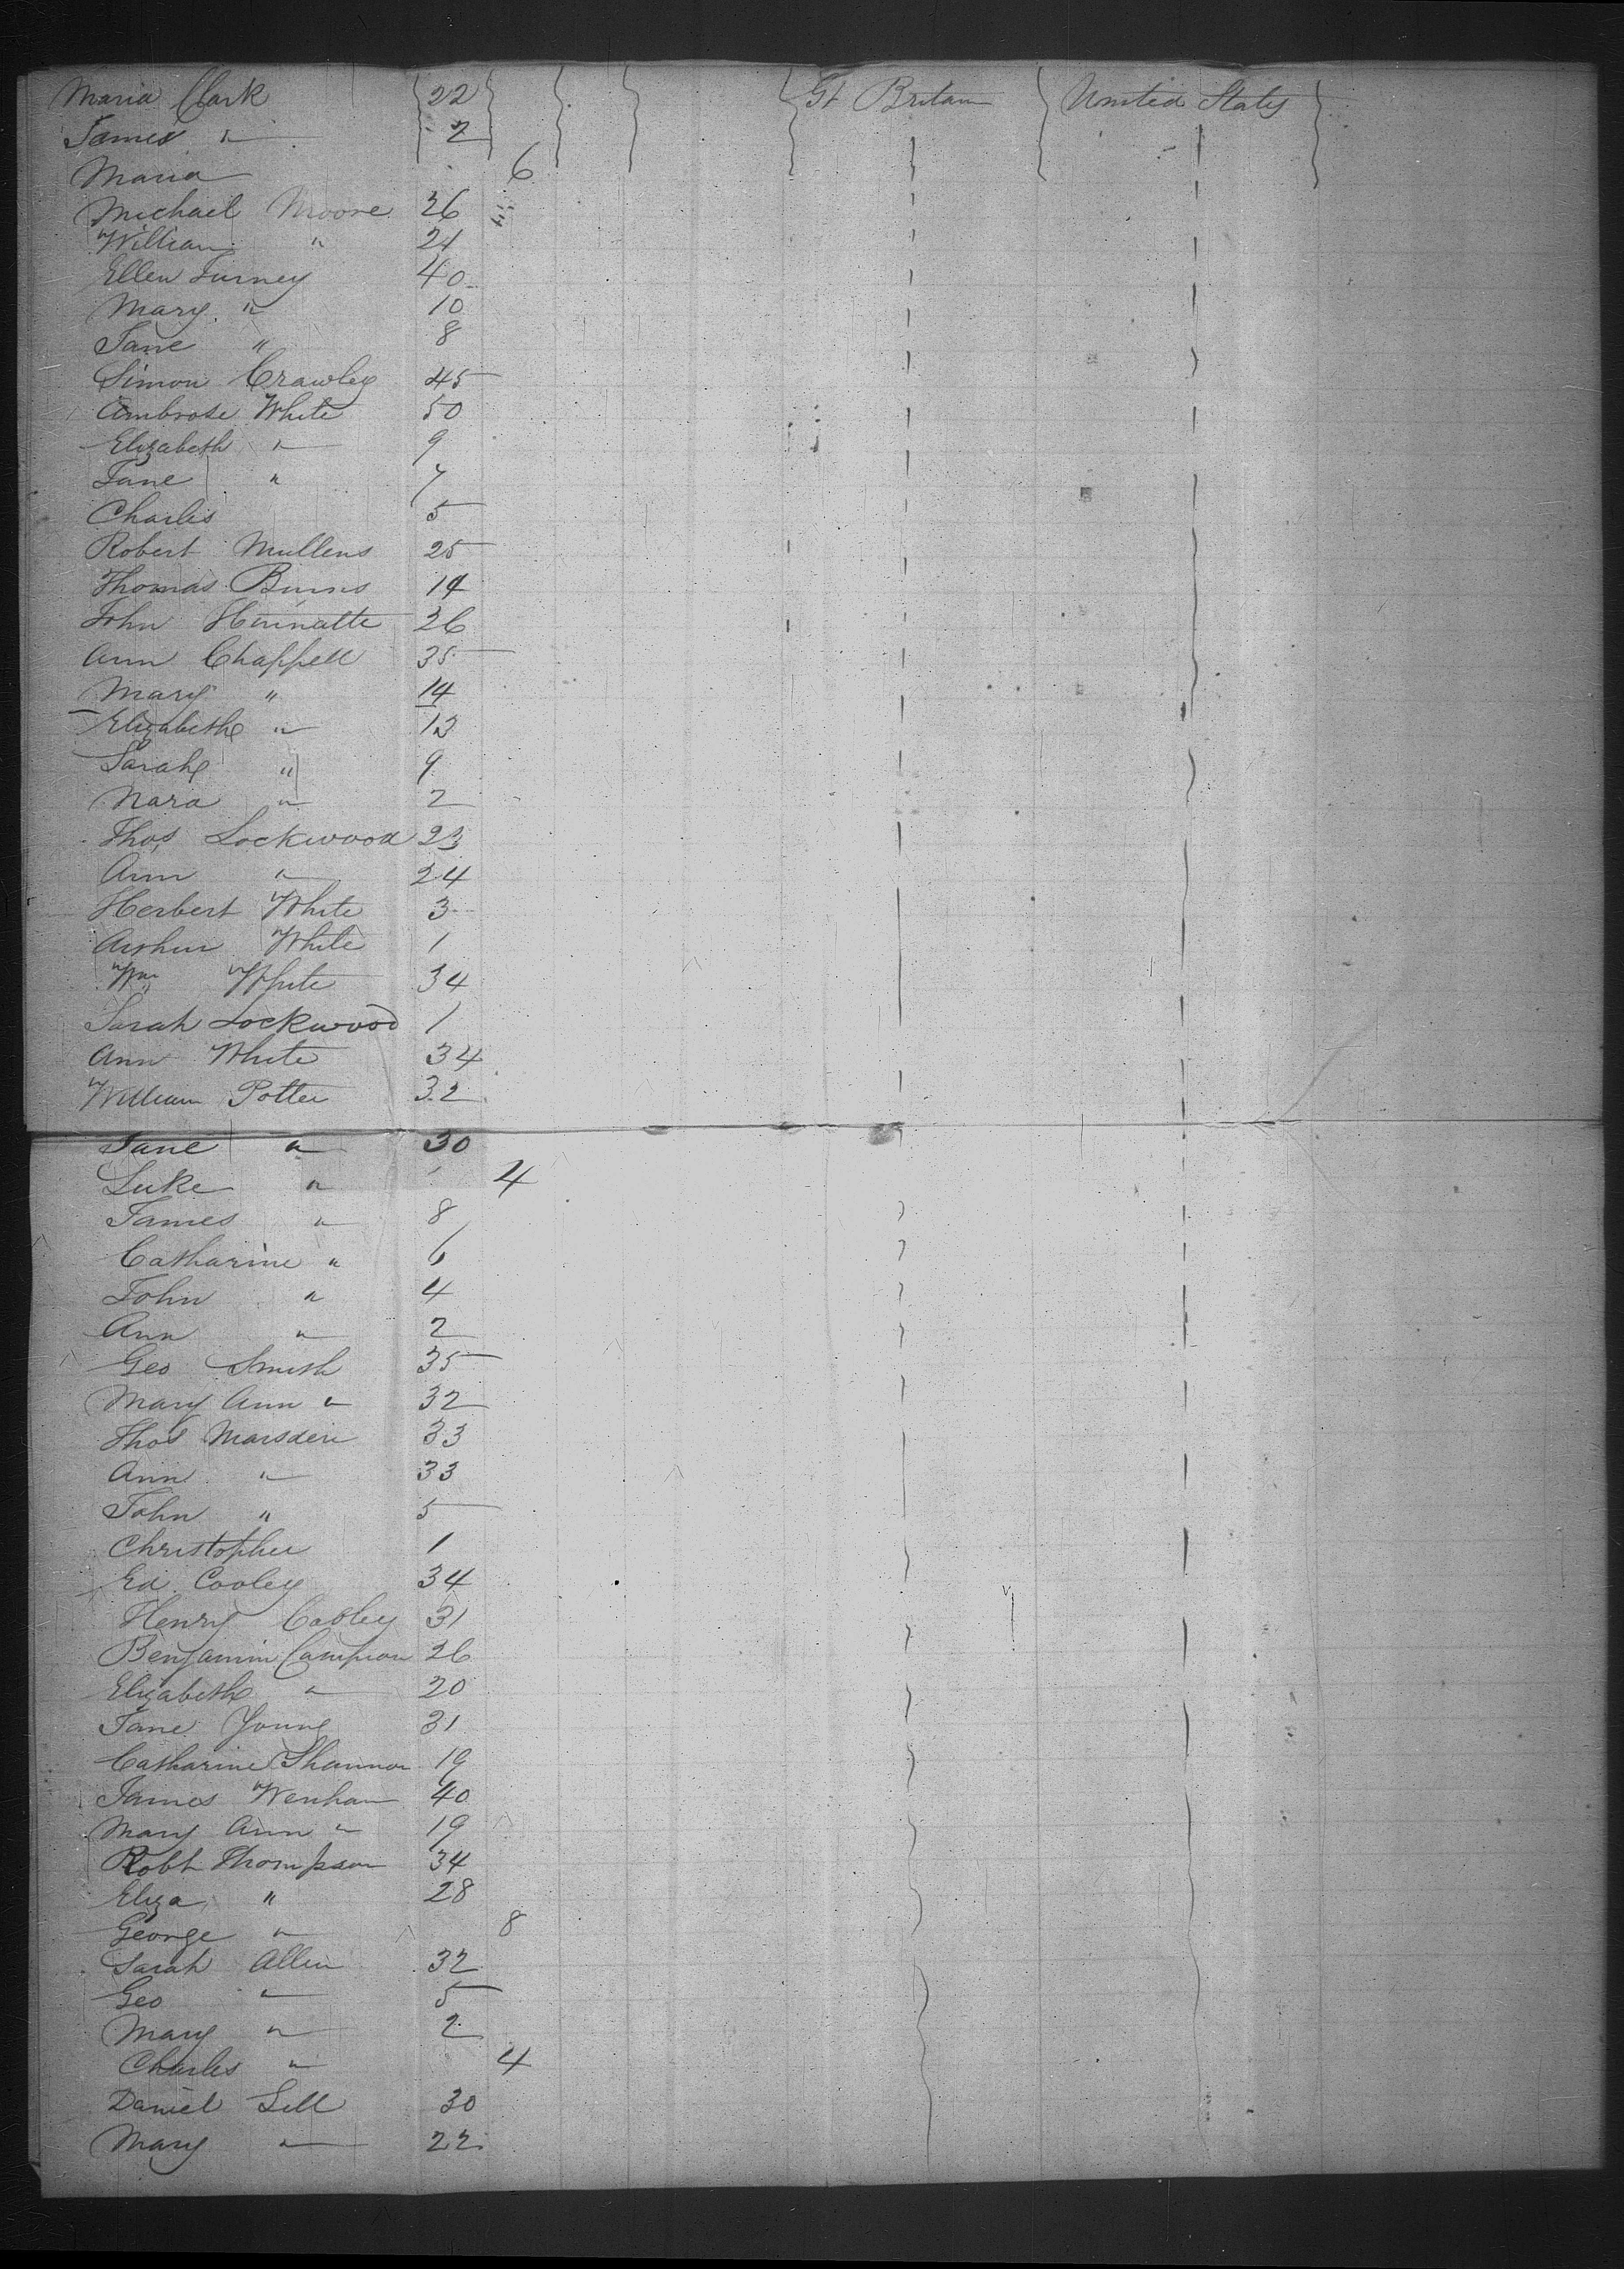 Maria Clark 22 Gt Britain United States
James " 2
Maria 6
Michael Moore 26
William " 24
Ellen Turney 40
Mary " 10
Jane " 8
Simon Crawley 45
Ambrose White 50
Elizabeth " 9
Jane " 7
Charles 5
Robert Mullens 25
Thomas Burns 14
John 26
Ann Chappell 35
Mary " 14
Elizabeth " 13
Sarah " 9
Nara " 2
Thos Lockwood 23
Ann " 24
Herbert White 3
Arthur White 1
Wm White 34
Sarah Lockwood 1
Ann White 34
William Potter 32
Jane " 30
Luke " 4
James " 8
Catharine " 6
John " 4
Ann " 2
Geo Smith 35
Mary Ann " 32
Thos Marsden 33
Ann " 33
John " 5
Christopher 1
Ed Cooley 34
Henry Cooley 31
Benjamin Campion 26
Elizabeth " 20
Jane Young 31
Catharine Shannon 19
James Wenham 40
Mary Ann " 19
Robt Thompson 34
Eliza " 28
George " 8
Sarah Allen 32
Geo " 5
Mary " 2
Charles " 4
Daniel Sell 30
Mary " 22